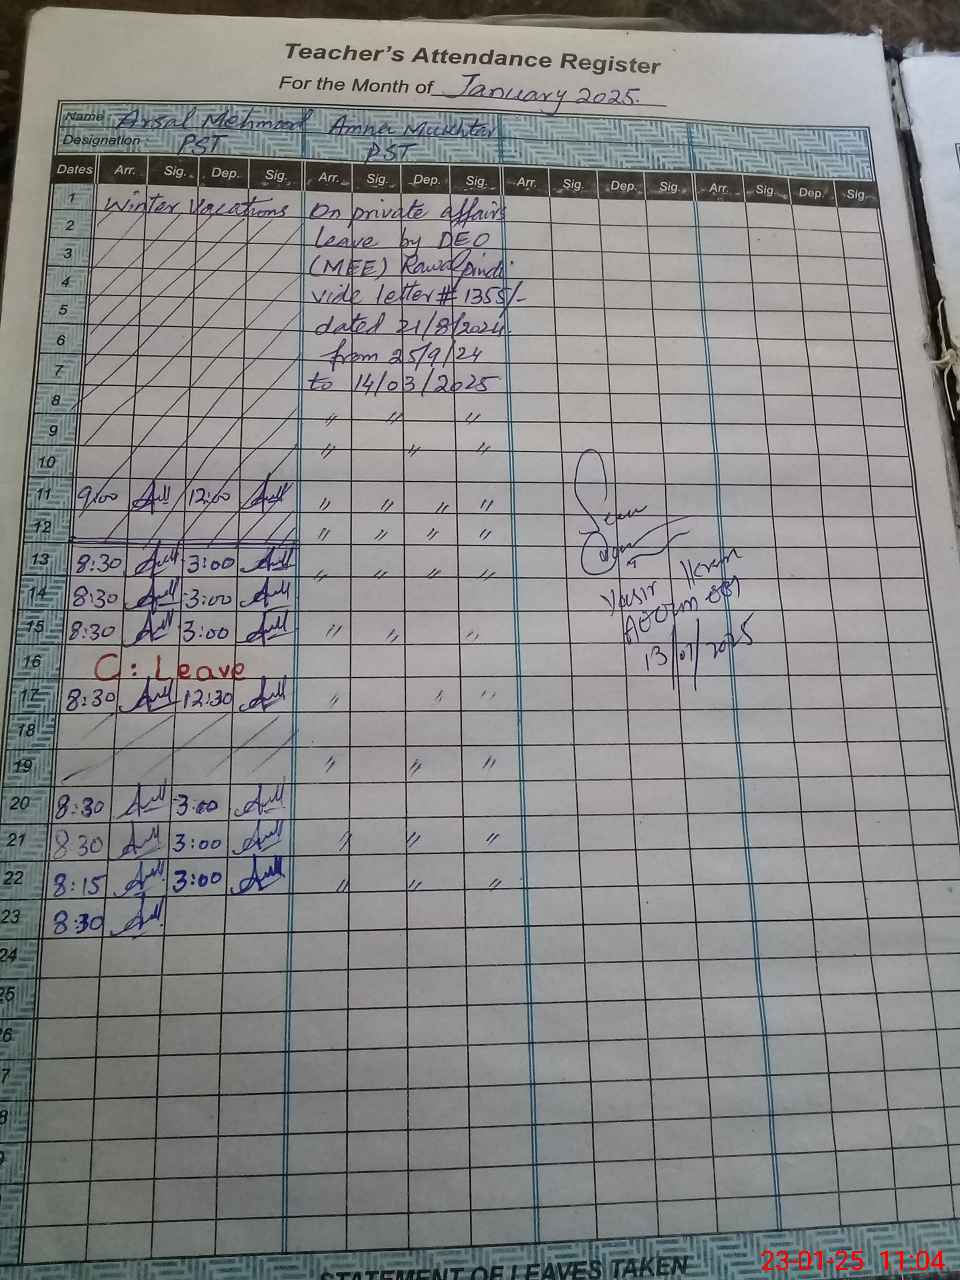 Teacher's Attendance Register
For the Month of January 2025.
Name: Arsal Mehmood Amna Mukhtar
Designation PST PST
Dates Arr. Sig. Dep. Sig. Arr. Sig. Dep. Sig. Arr. Sig. Dep. Sig. Arr. Sig. Dep. Sig.
1 Winter Vacations On private affairs
2 leave by DEO
3 (MEE) Rawalpindi
4 vide letter # 1355/-
5 dated 21/8/2024
6 from 25/9/24
7 to 14/03/2025
8 〃 〃 〃
9 〃 〃 〃
10
11 9:00 12:00 〃 〃 〃 〃
12 〃 〃 〃 〃
13 8:30 3:00 〃 〃 〃 〃
14 8:30 3:00
15 8:30 3:00 〃 〃 〃
16 C: Leave
17 8:30 12:30 〃 〃 〃
18
19 〃 〃 〃
20 8:30 3:00
21 8:30 3:00 〃 〃 〃
22 8:15 3:00 〃 〃 〃
23 8:30
24
25
6
7
8
Seen
Yasir Ikram
13/01/2025
STATEMENT OF LEAVES TAKEN
23-01-25 11:04